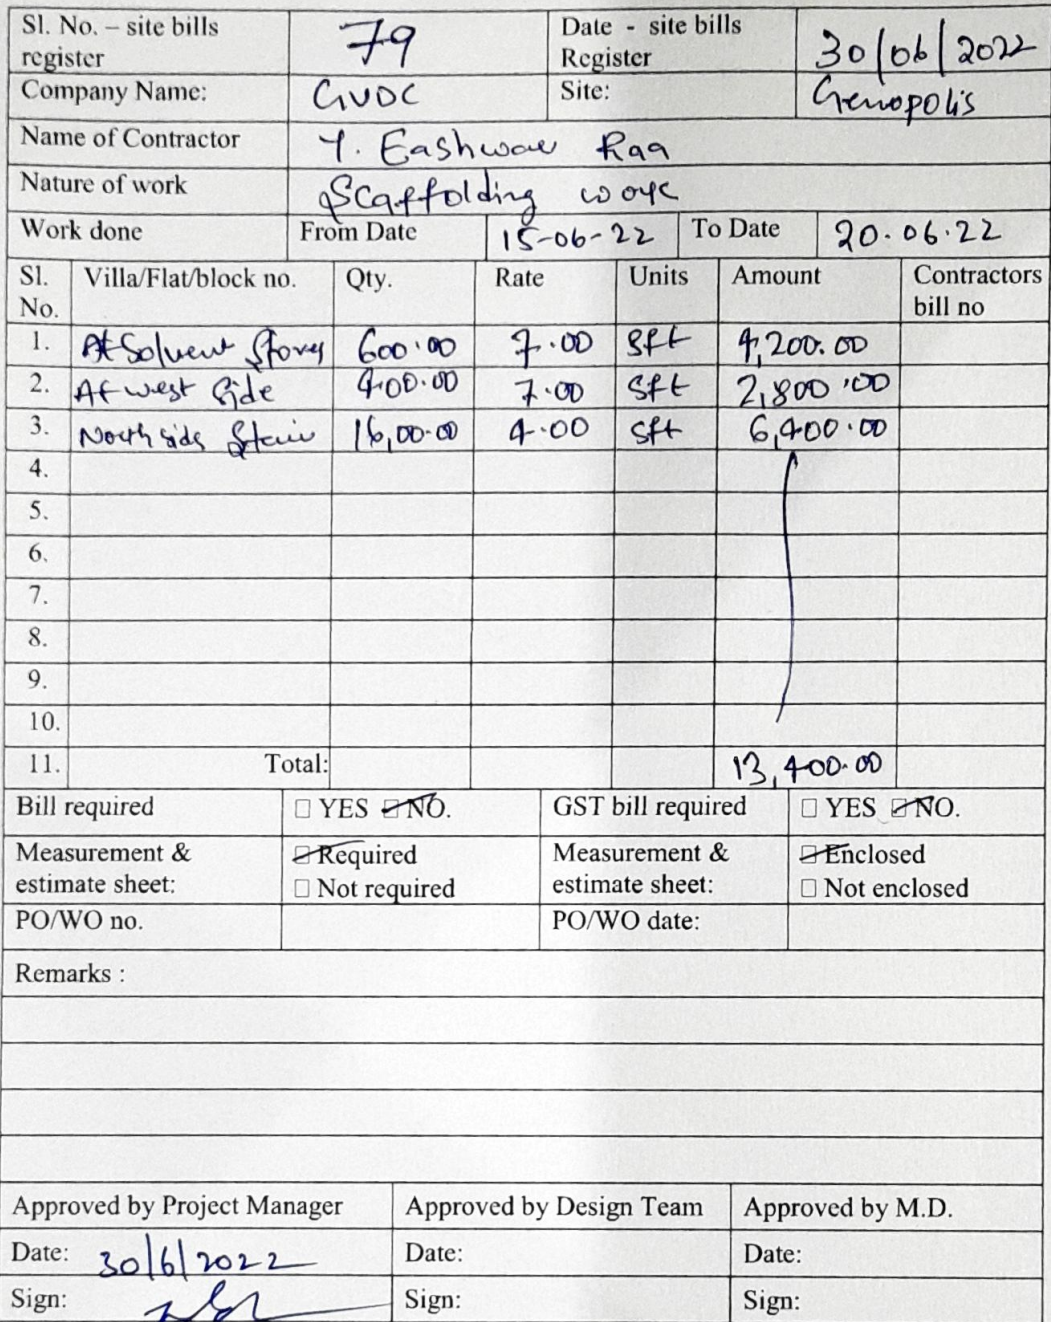 Sl. No. – site bills register 79 Date - site bills Register 30/06/2022
Company Name: GVDC Site: Genopolis
Name of Contractor Y. Eashwar Rao
Nature of work Scaffolding work
Work done From Date 15-06-22 To Date 20.06.22
Sl. No. Villa/Flat/block no. Qty. Rate Units Amount Contractors bill no
1. At Solvent Stores 600.00 7.00 Sft 4,200.00
2. At west Side 400.00 7.00 Sft 2,800.00
3. North side Stair 16,00.00 4.00 Sft 6,400.00
4.
5.
6.
7.
8.
9.
10.
11. Total: 13,400.00
Bill required □ YES □ NO. GST bill required □ YES □ NO.
Measurement & estimate sheet: □ Required □ Not required Measurement & estimate sheet: □ Enclosed □ Not enclosed
PO/WO no. PO/WO date:
Remarks :
Approved by Project Manager Approved by Design Team Approved by M.D.
Date: 30/6/2022 Date: Date:
Sign: Sign: Sign: